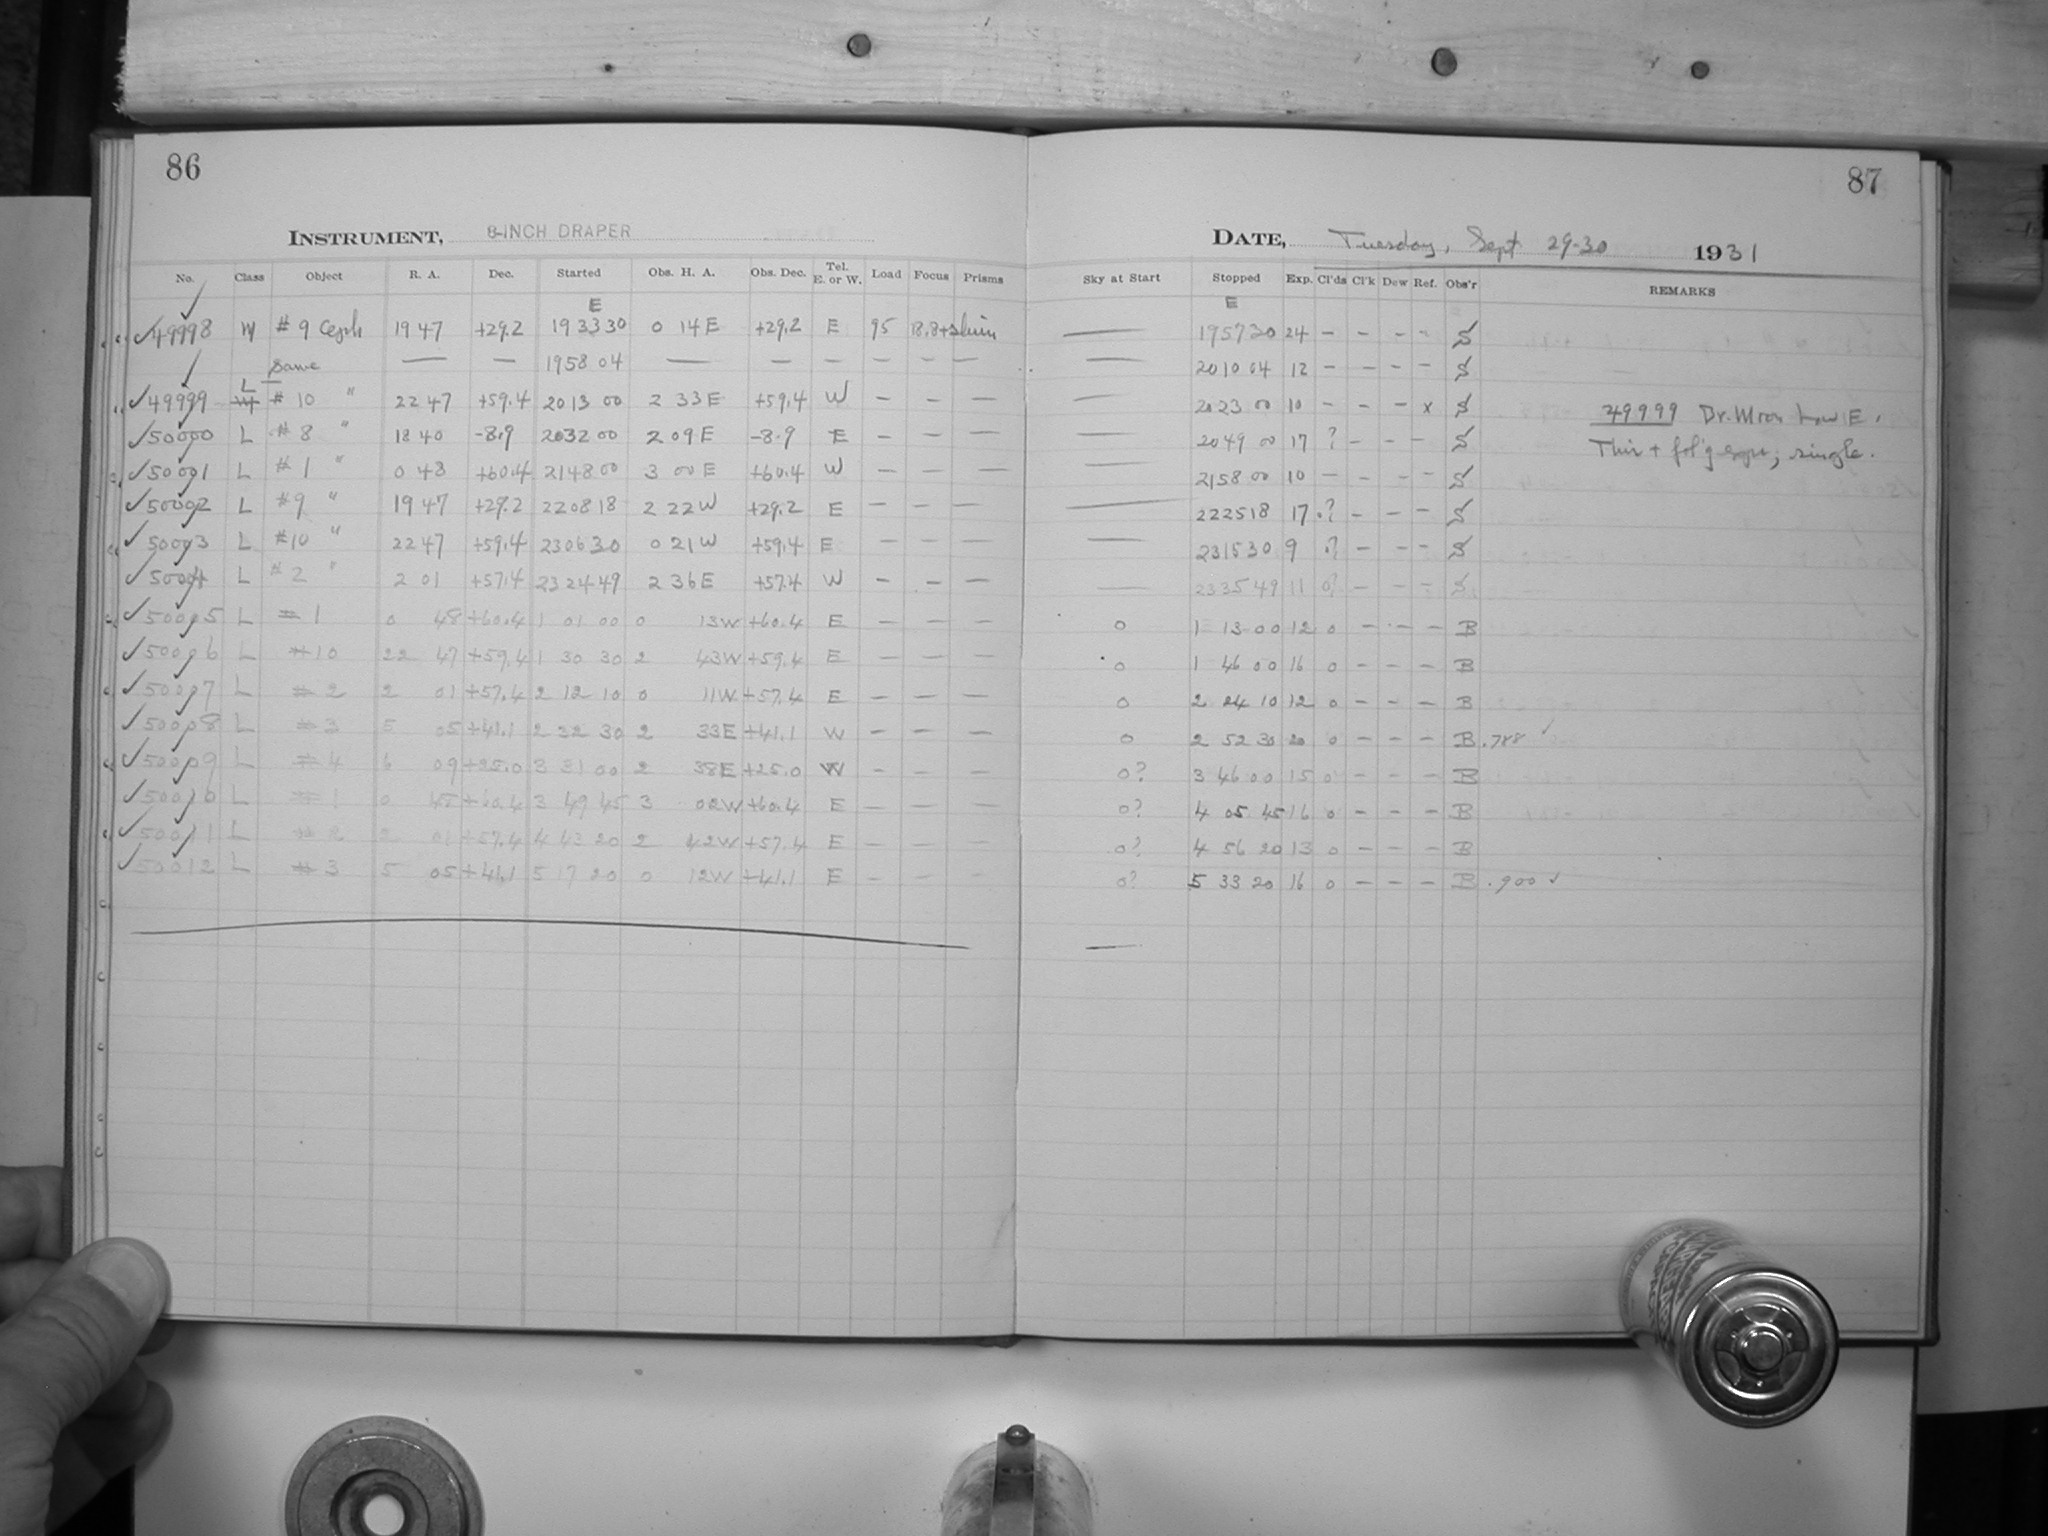 86
INSTRUMENT, 8-INCH DRAPER
No. Class Object R. A. Dec. Started Obs. H. A. Obs. Dec. Tel. E. or W. Load Focus Prisms
E
49998 # 9 Ceph 19 47 +29.2 19 33 30 0 14 E +29.2 E 95
Same — — 19 58 04 — — — — — —
49999 L # 10 " 22 47 +59.4 20 13 00 2 33 E +59.4 W — — —
50000 L # 8 " 18 40 -8.9 20 32 00 2 09 E -8.9 E — — —
50001 L # 1 " 0 48 +60.4 21 48 00 3 00 E +60.4 W — — —
50002 L # 9 " 19 47 +29.2 22 08 18 2 22 W +29.2 E — — —
50003 L #10 " 22 47 +59.4 23 06 30 0 21 W +59.4 E — — —
50004 L # 2 " 2 01 +57.4 23 24 49 2 36 E +57.4 W — — —
50005 L # 1 0 48 +60.4 1 01 00 0 13 W +60.4 E — — —
50006 L #10 22 47 +59.4 1 30 30 2 43 W +59.4 E — — —
50007 L # 2 2 01 +57.4 2 12 10 0 11 W +57.4 E — — —
50008 L # 3 5 05 +41.1 2 32 30 2 33 E +41.1 W — — —
50009 L # 4 6 09 +25.0 3 31 00 2 38 E +25.0 W — — —
50010 L # 1 0 48 +60.4 3 49 45 3 02 W +60.4 E — — —
50011 L # 2 2 01 +57.4 4 43 20 2 42 W +57.4 E — — —
50012 L # 3 5 05 +41.1 5 17 20 0 12 W +41.1 E — — —
87
DATE, Tuesday, Sept 29-30 1931
Sky at Start Stopped Exp. Cl'ds Cl'k Dew Ref. Obs'r REMARKS
E
— 19 57 30 24 — — — — S
— 20 10 04 12 — — — — S
— 20 23 00 10 — — — x S 49999 Dr. E.
— 20 49 00 17 ? — — — S fol'g ; single.
— 21 58 00 10 — — — — S
— 22 25 18 17 ? — — — S
— 23 15 30 9 ? — — — S
— 23 35 49 11 0? — — — S
0 1 13 00 12 0 — — — B
0 1 46 00 16 0 — — — B
0 2 24 10 12 0 — — — B
0 2 52 30 20 0 — — — B .788 ✓
0? 3 46 00 15 0 — — — B
0? 4 05 45 16 0 — — — B
0? 4 56 20 13 0 — — — B
0? 5 33 20 16 0 — — — B .900 ✓